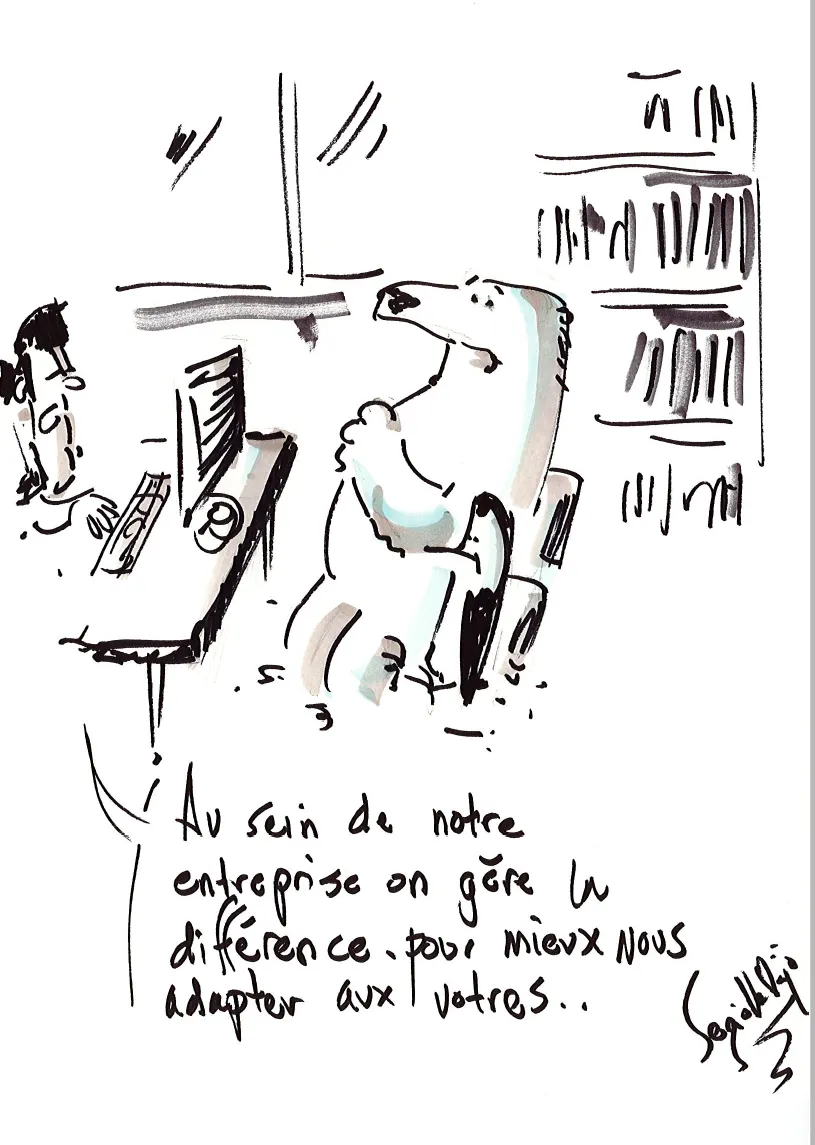 Au sein de notre
entreprise on gère la
différence. pour mieux nous
adapter aux vôtres..